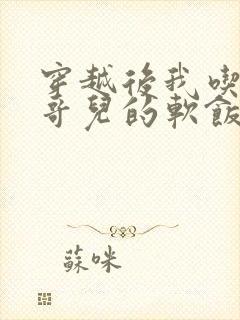 穿越後我喫
哥兒的軟飯
蘇咪